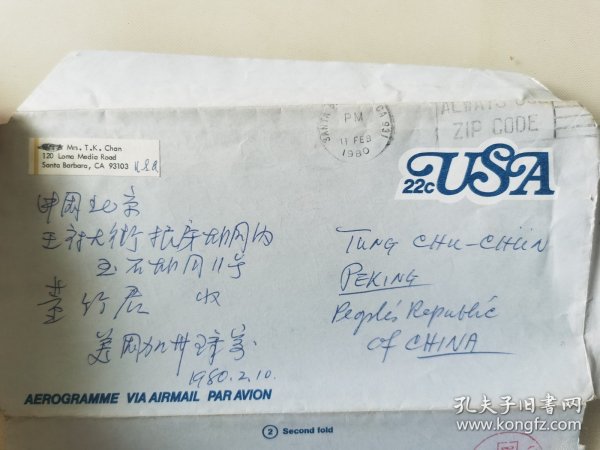 Mrs. T.K. Chan
120 Loma Media Road
Santa Barbara, CA 93103 USA
SANTA
CA 931
PM
11 FEB
1980
ALWAYS
ZIP CODE
22c USA
中国北京
玉石胡同11号
董竹君 收
美国加州
1980.2.10.
TUNG CHU-CHÜN
PEKING
People's Republic
of CHINA
AEROGRAMME VIA AIRMAIL PAR AVION
2 Second fold
孔夫子旧书网